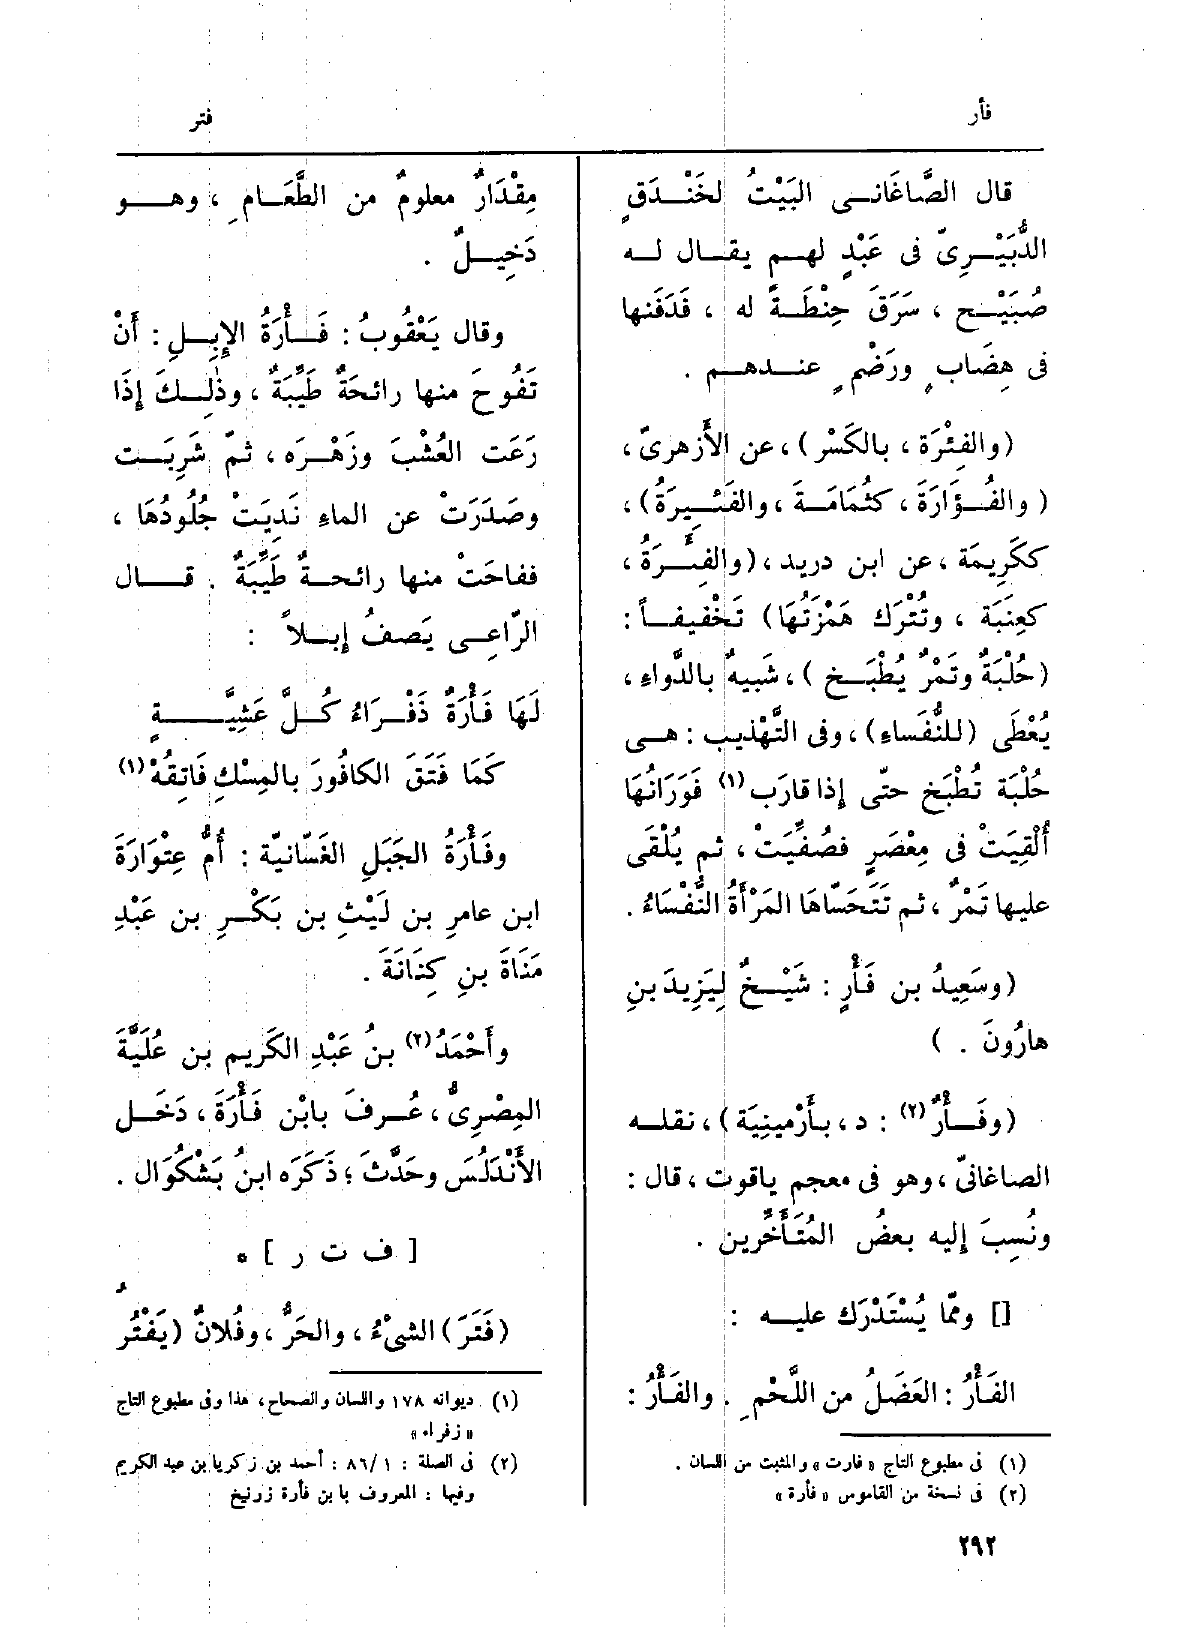 فأر
فتر
قال الصَّاغَانى البَيْتُ لخَنْدَقٍ
الدُّبَيْرِىّ فى عَبْدٍ لهم يقال له
صُبَيْح ، سَرَقَ حِنْطَةً له ، فَدَفَنها
فى هِضَابٍ ورَضْمٍ عندهم .
(والفِئْرَة ، بالكَسْر) ، عن الأَزهرىّ ،
( والفُؤَارَة ، كثُمَامَة ، والفَئِيرَةُ) ،
ككَرِيمَة ، عن ابن دريد ، (والفِئَرَةُ ،
كعِنَبَة ، وتُتْرَك هَمْزَتُهَا) تَخْفيفاً :
(حُلْبَةٌ وتَمْرٌ يُطْبَخ ) ، شَبيهٌ بالدَّواءِ ،
يُعْطَى (للنُّفَساءِ) ، وفى التَّهْذِيب : هى
حُلْبَة تُطْبَخ حتَّى إذا قارَب (١) فَوَرَانُهَا
أُلْقِيَتْ فى مِعْصَرٍ فصُفِّيَتْ ، ثم يُلْقَى
عليها تَمْرٌ ، ثم تَتَحَسّاهَا المَرْأَةُ النُّفْسَاءُ .
(وسَعِيدُ بن فَأْرٍ : شَيْخٌ لِيَزِيدَ بنِ
هارُونَ . )
(وفَأْرٌ (٢) : د ، بأَرْمينِيَة ) ، نقله
الصاغانىّ ، وهو فى معجم ياقوت ، قال :
ونُسِبَ إليه بعضُ المُتَأَخِّرين .
[] وممّا يُسْتَدْرَك عليه :
الفَأْرُ : العَضَلُ من اللَّحْمِ . والفَأْرُ :
(١) فى مطبوع التاج « فارت » والمثبت من اللسان .
(٢) فى نسخة من القاموس « فأرة »
مِقْدَارٌ معلومٌ من الطَّعَامِ ، وهو
دَخِيلٌ .
وقال يَعْقُوبُ : فَأْرَةُ الإِبِلِ : أَنْ
تَفُوحَ منها رائحَةٌ طَيِّبَةٌ ، وذٰلِكَ إذَا
رَعَت العُشْبَ وزَهْرَه ، ثمّ شَرِبَت
وصَدَرَتْ عن الماءِ نَدِيَتْ جُلُودُهَا ،
ففاحَتْ منها رائحةٌ طَيِّبَةٌ . قال
الرّاعِى يَصفُ إبلاً :
لَهَا فَأْرَةٌ ذَفْرَاءُ كُلَّ عَشِيَّةٍ
كَمَا فَتَقَ الكافُورَ بالمِسْكِ فَاتِقُهْ (١)
وفَأْرَةُ الجَبَلِ الغَسّانيّة : أُمُّ عِتْوَارَةَ
ابن عامرِ بن لَيْثِ بن بَكْرِ بن عَبْدِ
مَنَاةَ بنِ كِنَانَةَ .
وأَحْمَدُ (٢) بنُ عَبْدِ الكَريم بن عُلَيَّةَ
المِصْرِىُّ ، عُرفَ بابْن فَأْرَةَ ، دَخَل
الأَنْدَلُسَ وحَدَّثَ ؛ ذَكَرَه ابنُ بَشْكُوَال .
[ ف ت ر ] *
(فَتَرَ) الشىْءُ ، والحَرُّ ، وفُلانٌ (يَفْتُرُ
(١) ديوانه ١٧٨ واللسان والصحاح ، هذا وفى مطبوع التاج
« زفراء »
(٢) فى الصلة : ٨٦/١ : أحمد بن زكريا بن عبد الكريم
وفيها : المعروف بابن فأرة زرنيخ
٢٩٢